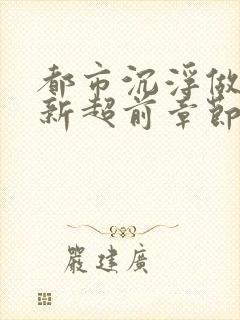 都市沉浮做
新超前章節
嚴建廣